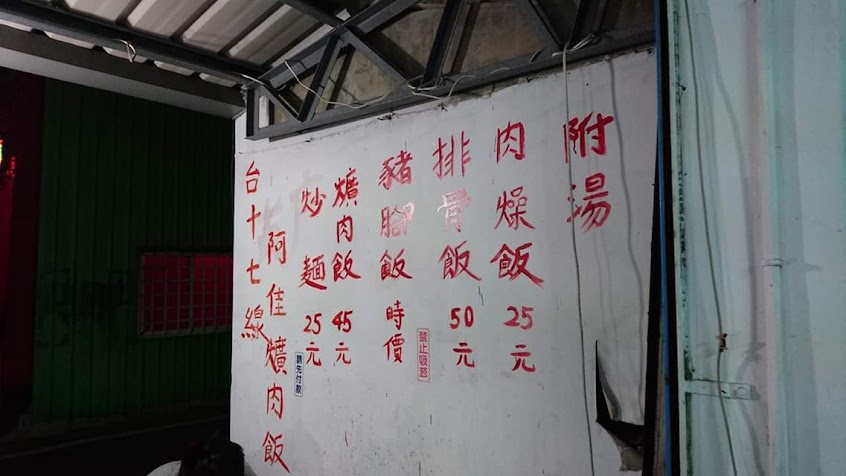 附湯
肉燥飯25元
排骨飯50元
豬腳飯時價
禁止吸菸
爌肉飯45元
炒麵25元
請先付款
阿佳爌肉飯
台十七線